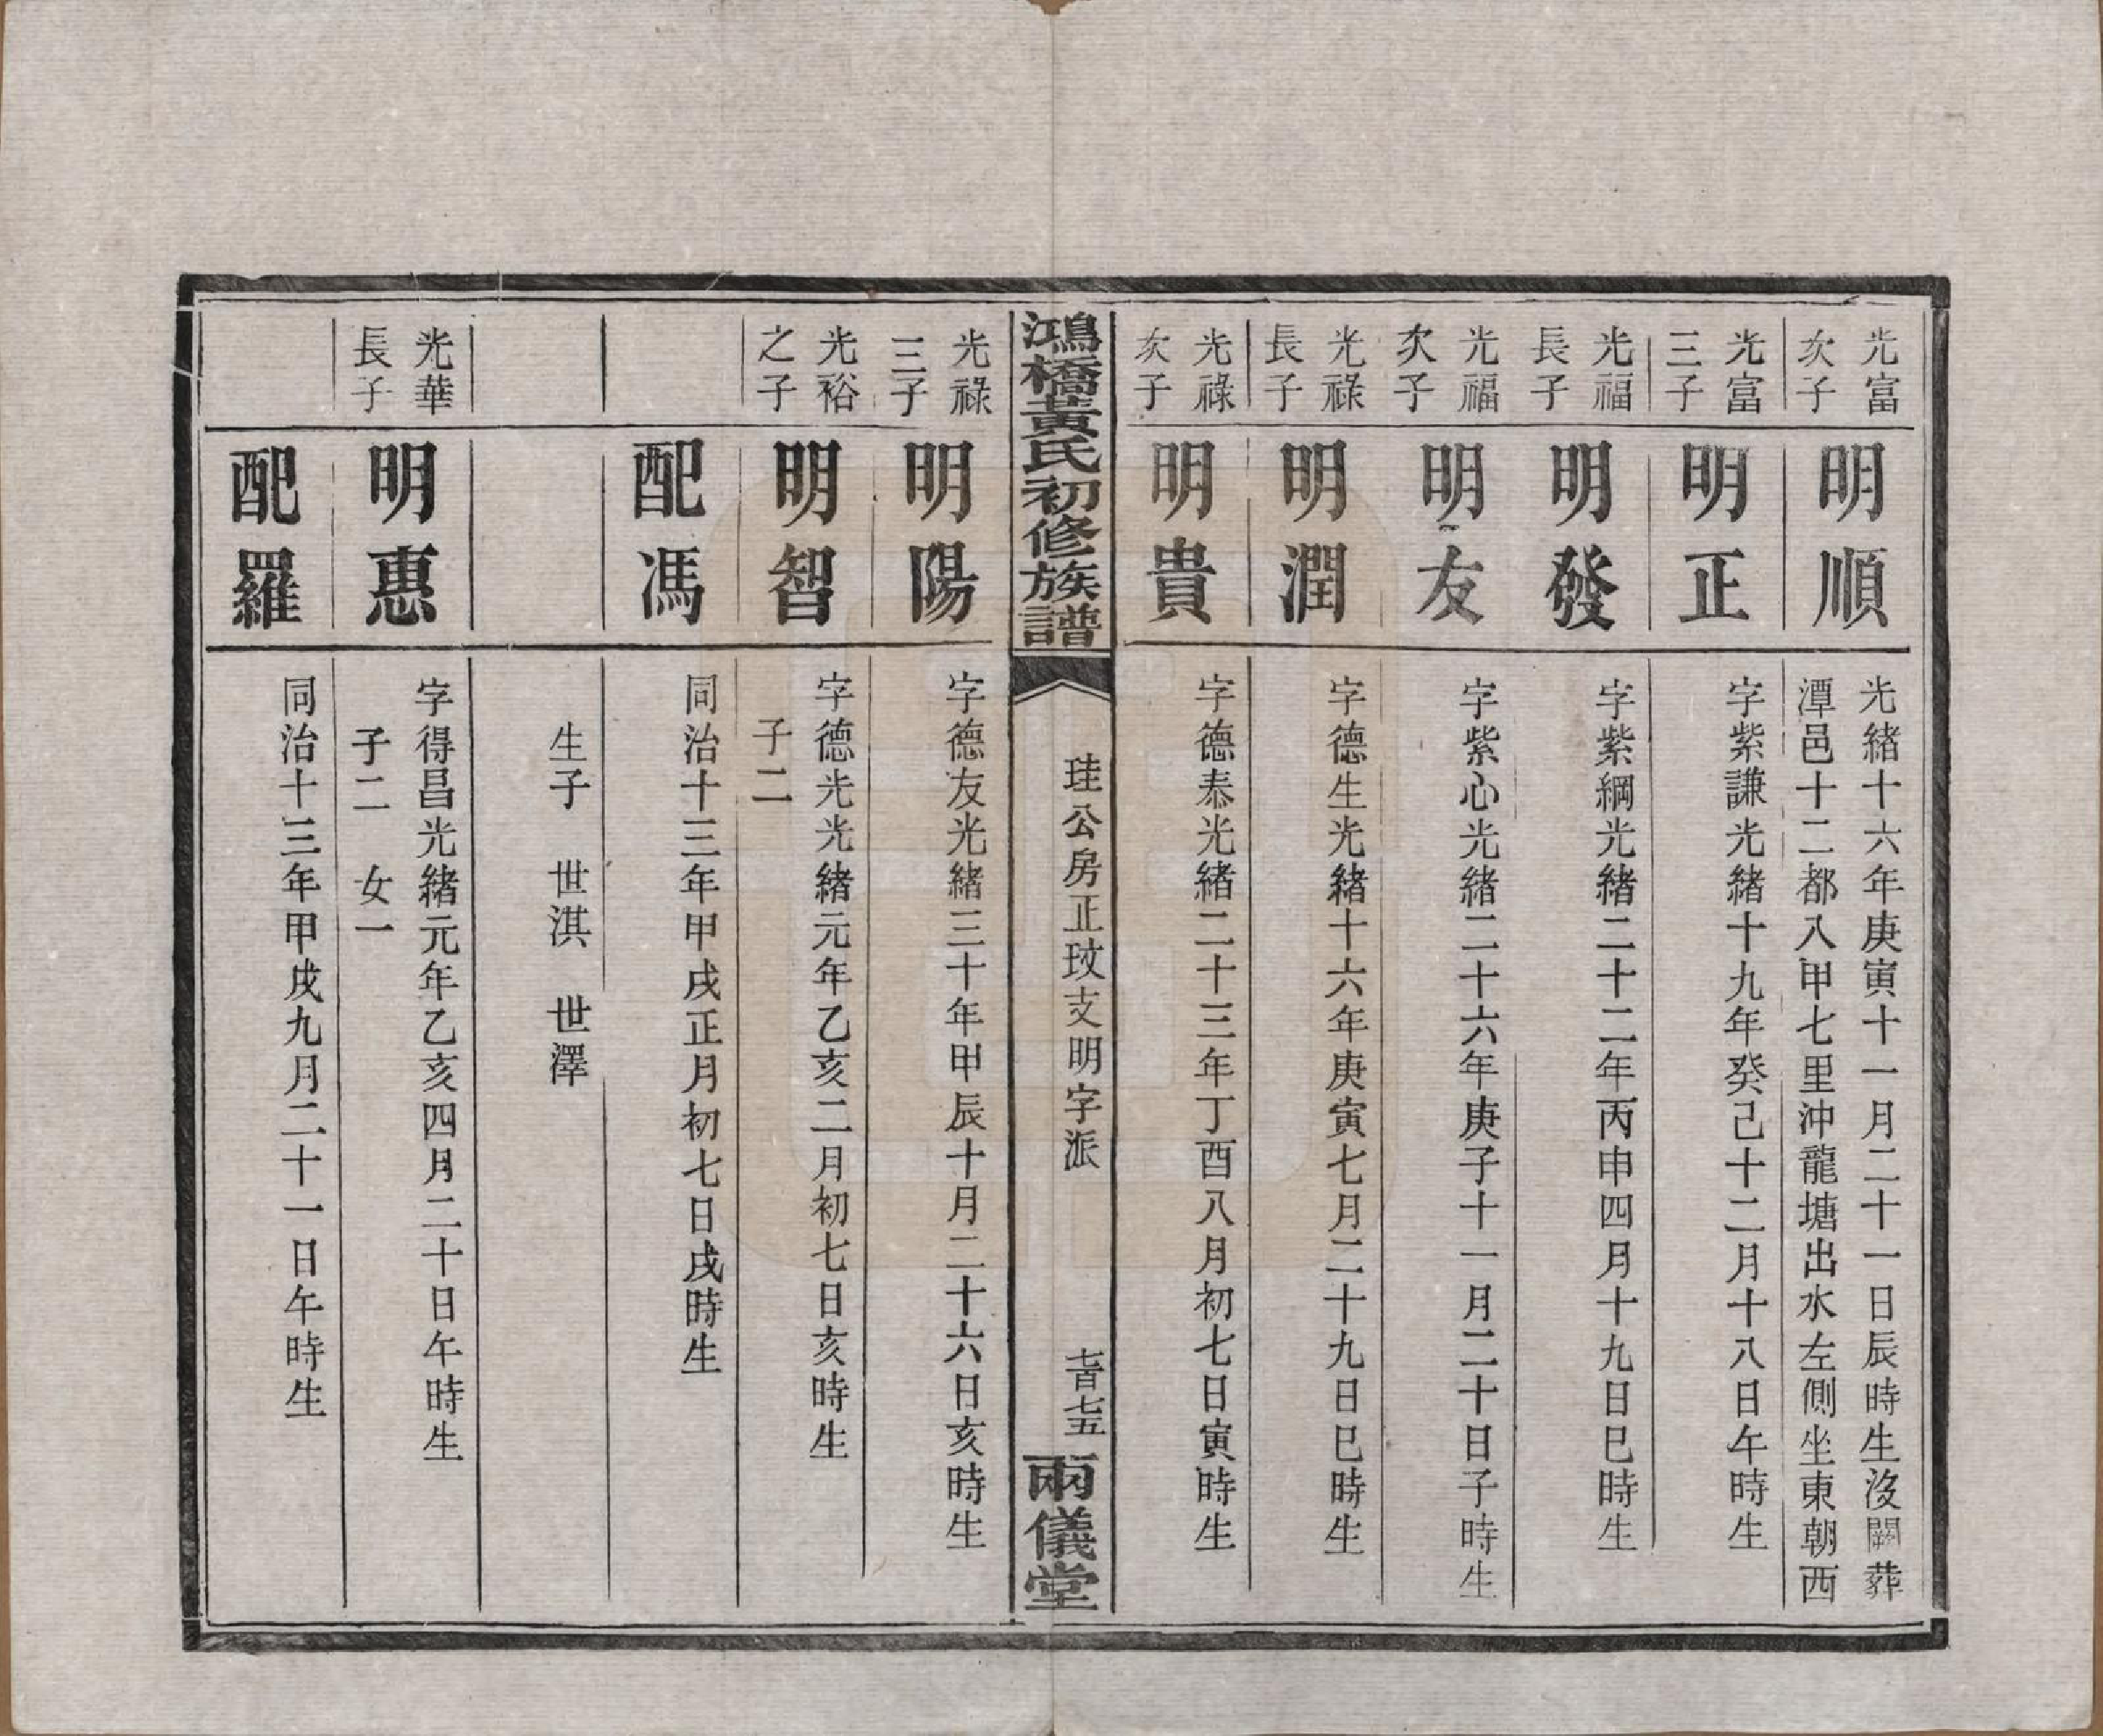 光富
次子
明順
光緒十六年庚寅十一月二十一日辰時生沒闕葬
潭邑十二都八甲七里沖龍塘出水左側坐東朝西
光富
三子
明正
字紫謙光緒十九年癸己十二月十八日午時生
光福
長子
明發
字紫綱光緒二十二年丙申四月十九日巳時生
光福
次子
明友
字紫心光緒二十六年庚子十一月二十日子時生
光祿
長子
明潤
字德生光緒十六年庚寅七月二十九日巳時生
光祿
次子
明貴
字德泰光緒二十三年丁酉八月初七日寅時生
鴻橋黃氏初修族譜
珪公房正玟支明字派
七百七五
兩儀堂
光祿
三子
明陽
字德友光緒三十年甲辰十月二十六日亥時生
光裕
之子
明智
字德光光緒元年乙亥二月初七日亥時生
子二
配馮
同治十三年甲戌正月初七日戌時生
生子 世淇 世澤
光華
長子
明惠
字得昌光緒元年乙亥四月二十日午時生
子二 女一
配羅
同治十三年甲戌九月二十一日午時生